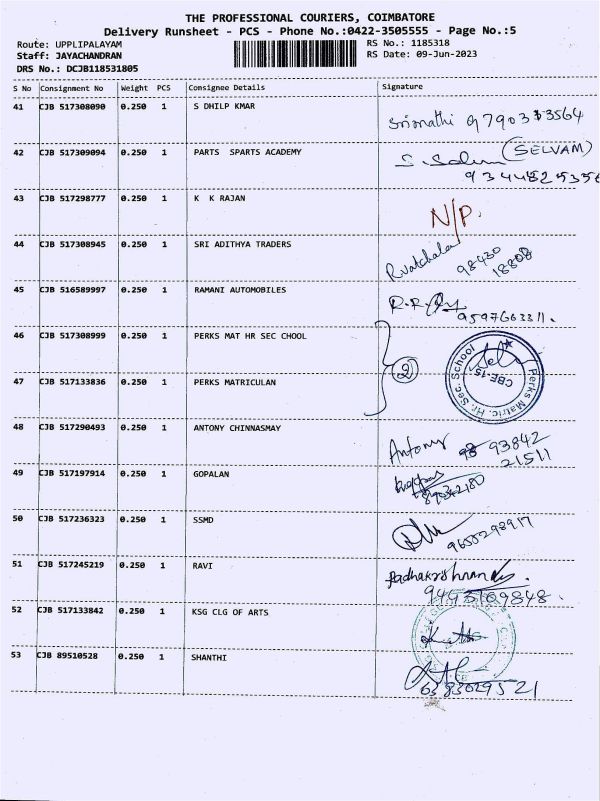 THE PROFESSIONAL COURIERS, COIMBATORE
Delivery Runsheet - PCS - Phone No.:0422-3505555 - Page No.:5
Route: UPPLIPALAYAM
Staff: JAYACHANDRAN
DRS No.: DCJB118531805
RS No.: 1185318
RS Date: 09-Jun-2023
S No Consignment No Weight PCS Consignee Details Signature
41 CJB 517308090 0.250 1 S DHILP KMAR
Srimathi 9790333564
42 CJB 517309094 0.250 1 PARTS SPARTS ACADEMY
(SELVAM)
9344825356
43 CJB 517298777 0.250 1 K K RAJAN
N/P.
44 CJB 517308945 0.250 1 SRI ADITHYA TRADERS
R.vatchala 98430
18808
45 CJB 516589997 0.250 1 RAMANI AUTOMOBILES
9597663311.
46 CJB 517308999 0.250 1 PERKS MAT HR SEC CHOOL
2
Perks Matric. Hr. Sec. School
CBE-15
47 CJB 517133836 0.250 1 PERKS MATRICULAN
48 CJB 517290493 0.250 1 ANTONY CHINNASMAY
Antony 98 93842
21511
49 CJB 517197914 0.250 1 GOPALAN
50 CJB 517236323 0.250 1 SSMD
9655298917
51 CJB 517245219 0.250 1 RAVI
Radhakrishnan
9443169848.
52 CJB 517133842 0.250 1 KSG CLG OF ARTS
53 CJB 89510528 0.250 1 SHANTHI
6383029521